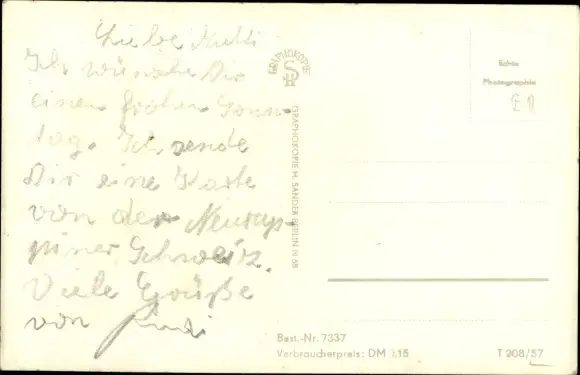 Liebe Mutti
Ich wünsche Dir
einen frohen Sonn-
tag. Ich sende
Dir eine Karte
von der Neurup-
piner Schweiz.
Viele Grüße
von
GRAPHOKOPIE
GRAPHOKOPIE H. SANDER BERLIN N 58
Echte
Photographie
Best.-Nr. 7337
Verbraucherpreis: DM 0.15
T 208/57